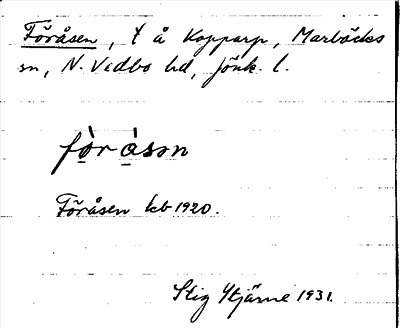 Föråsen, t å Kopparp, Marbäcks
sn, N. Vedbo hd, Jönk. l.
fòr àsɷn
Föråsen kb 1920.
Stig Stjärne 1931.